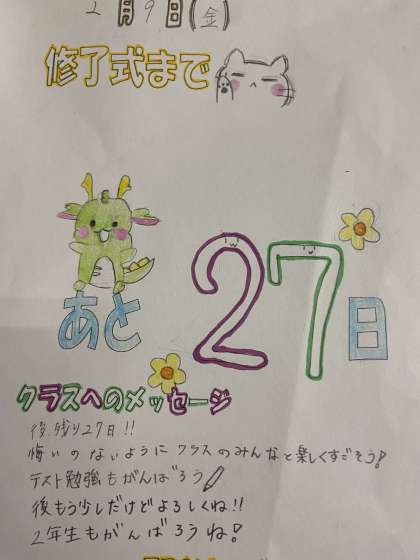 2月9日(金)
修了式まで
あと27日
クラスへのメッセージ
後、残り27日!!
悔いのないようにクラスのみんなと楽しくすごそう!
テスト勉強もがんばろう
後もう少しだけどよろしくね!!
2年生もがんばろうね!